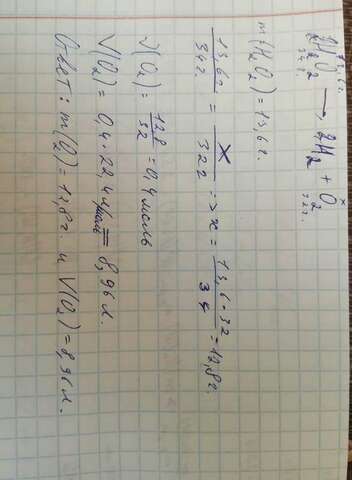 13,6г. x
2H₂O₂ ⟶ 2H₂ + O₂
34г. 32г.
m(H₂O₂) = 13,6г.
13,6г/34г. = x/32г => x = 13,6·32/34 = 12,8г.
ν(O₂) = 12,8/32 = 0,4 моль
V(O₂) = 0,4 · 22,4 л/моль = 8,96 л.
Ответ: m(O₂) = 12,8г. и V(O₂) = 8,96 л.